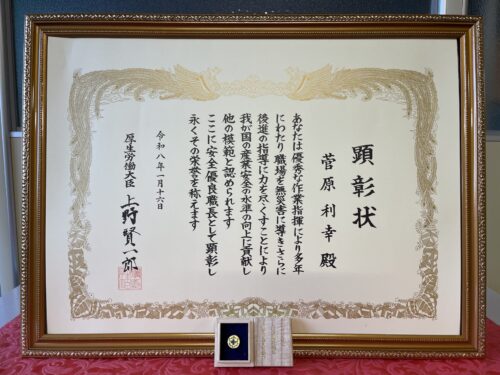 顕彰状
菅原利幸殿
あなたは優秀な作業指揮により多年
にわたり職場を無災害に導きさらに
後進の指導に力を尽くすことにより
我が国の産業安全の水準の向上に貢献し
他の模範と認められます
ここに安全優良職長として顕彰し
永くその栄誉を称えます
令和八年一月十六日
厚生労働大臣 上野賢一郎